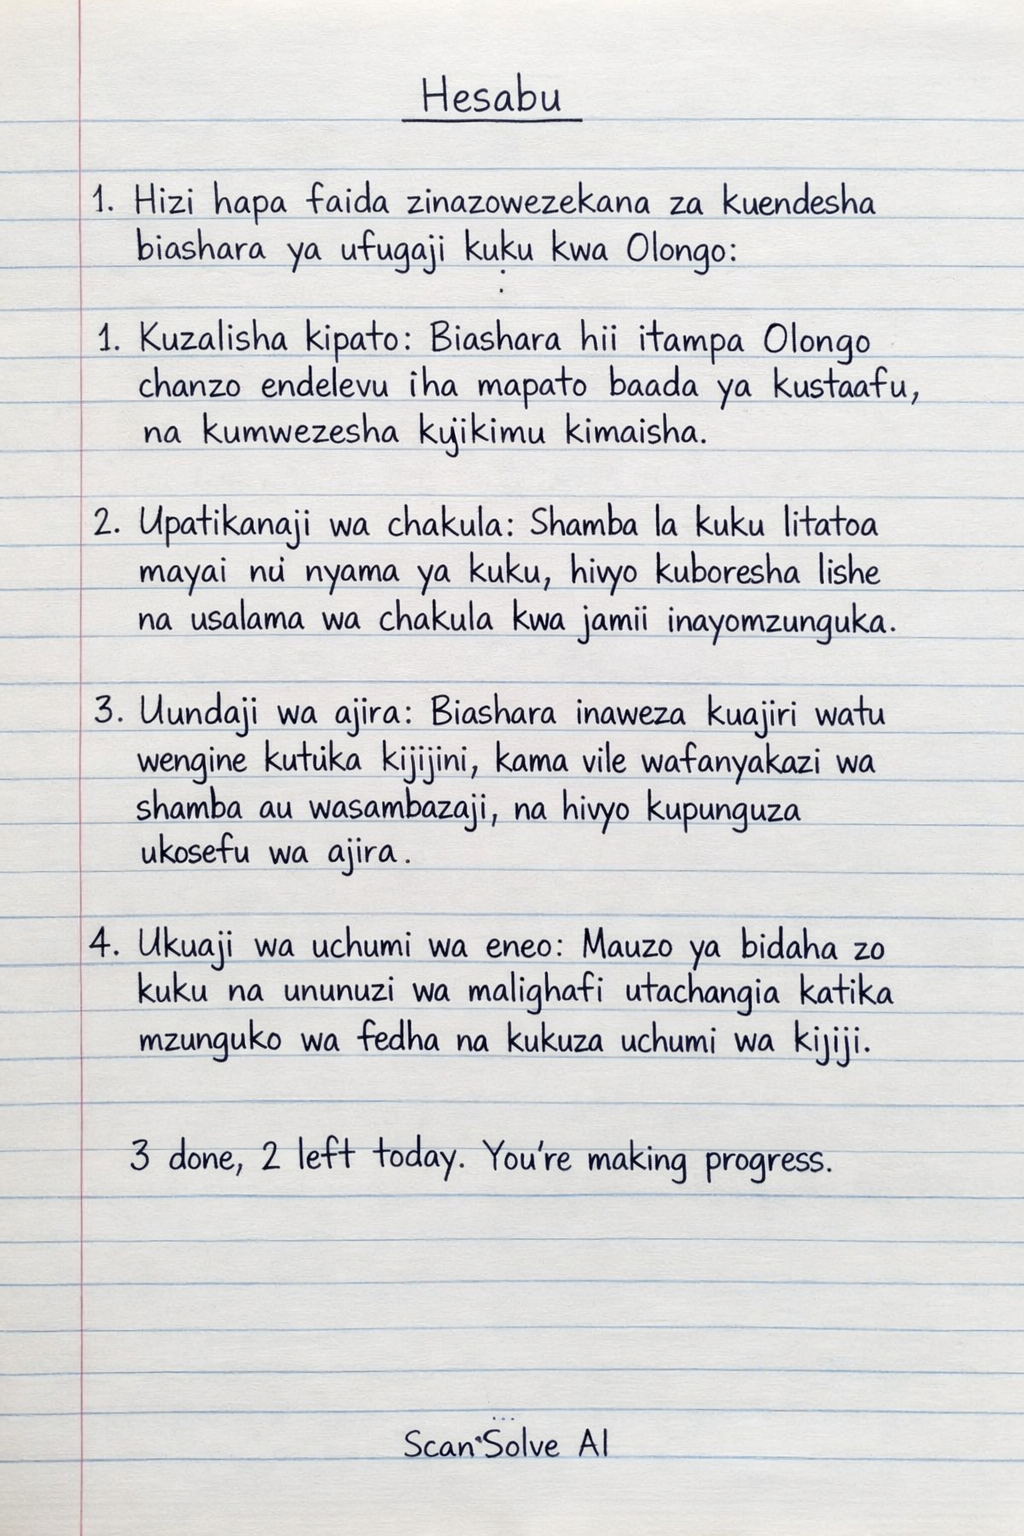 Hesabu
1. Hizi hapa faida zinazowezekana za kuendesha
biashara ya ufugaji kuku kwa Olongo:
1. Kuzalisha kipato: Biashara hii itampa Olongo
chanzo endelevu iha mapato baada ya kustaafu,
na kumwezesha kyjikimu kimaisha.
2. Upatikanaji wa chakula: Shamba la kuku litatoa
mayai nu nyama ya kuku, hivyo kuboresha lishe
na usalama wa chakula kwa jamii inayomzunguka.
3. Uundaji wa ajira: Biashara inaweza kuajiri watu
wengine kutuka kijijini, kama vile wafanyakazi wa
shamba au wasambazaji, na hivyo kupunguza
ukosefu wa ajira.
4. Ukuaji wa uchumi wa eneo: Mauzo ya bidaha zo
kuku na ununuzi wa malighafi utachangia katika
mzunguko wa fedha na kukuza uchumi wa kijiji.
3 done, 2 left today. You're making progress.
Scan•Solve AI